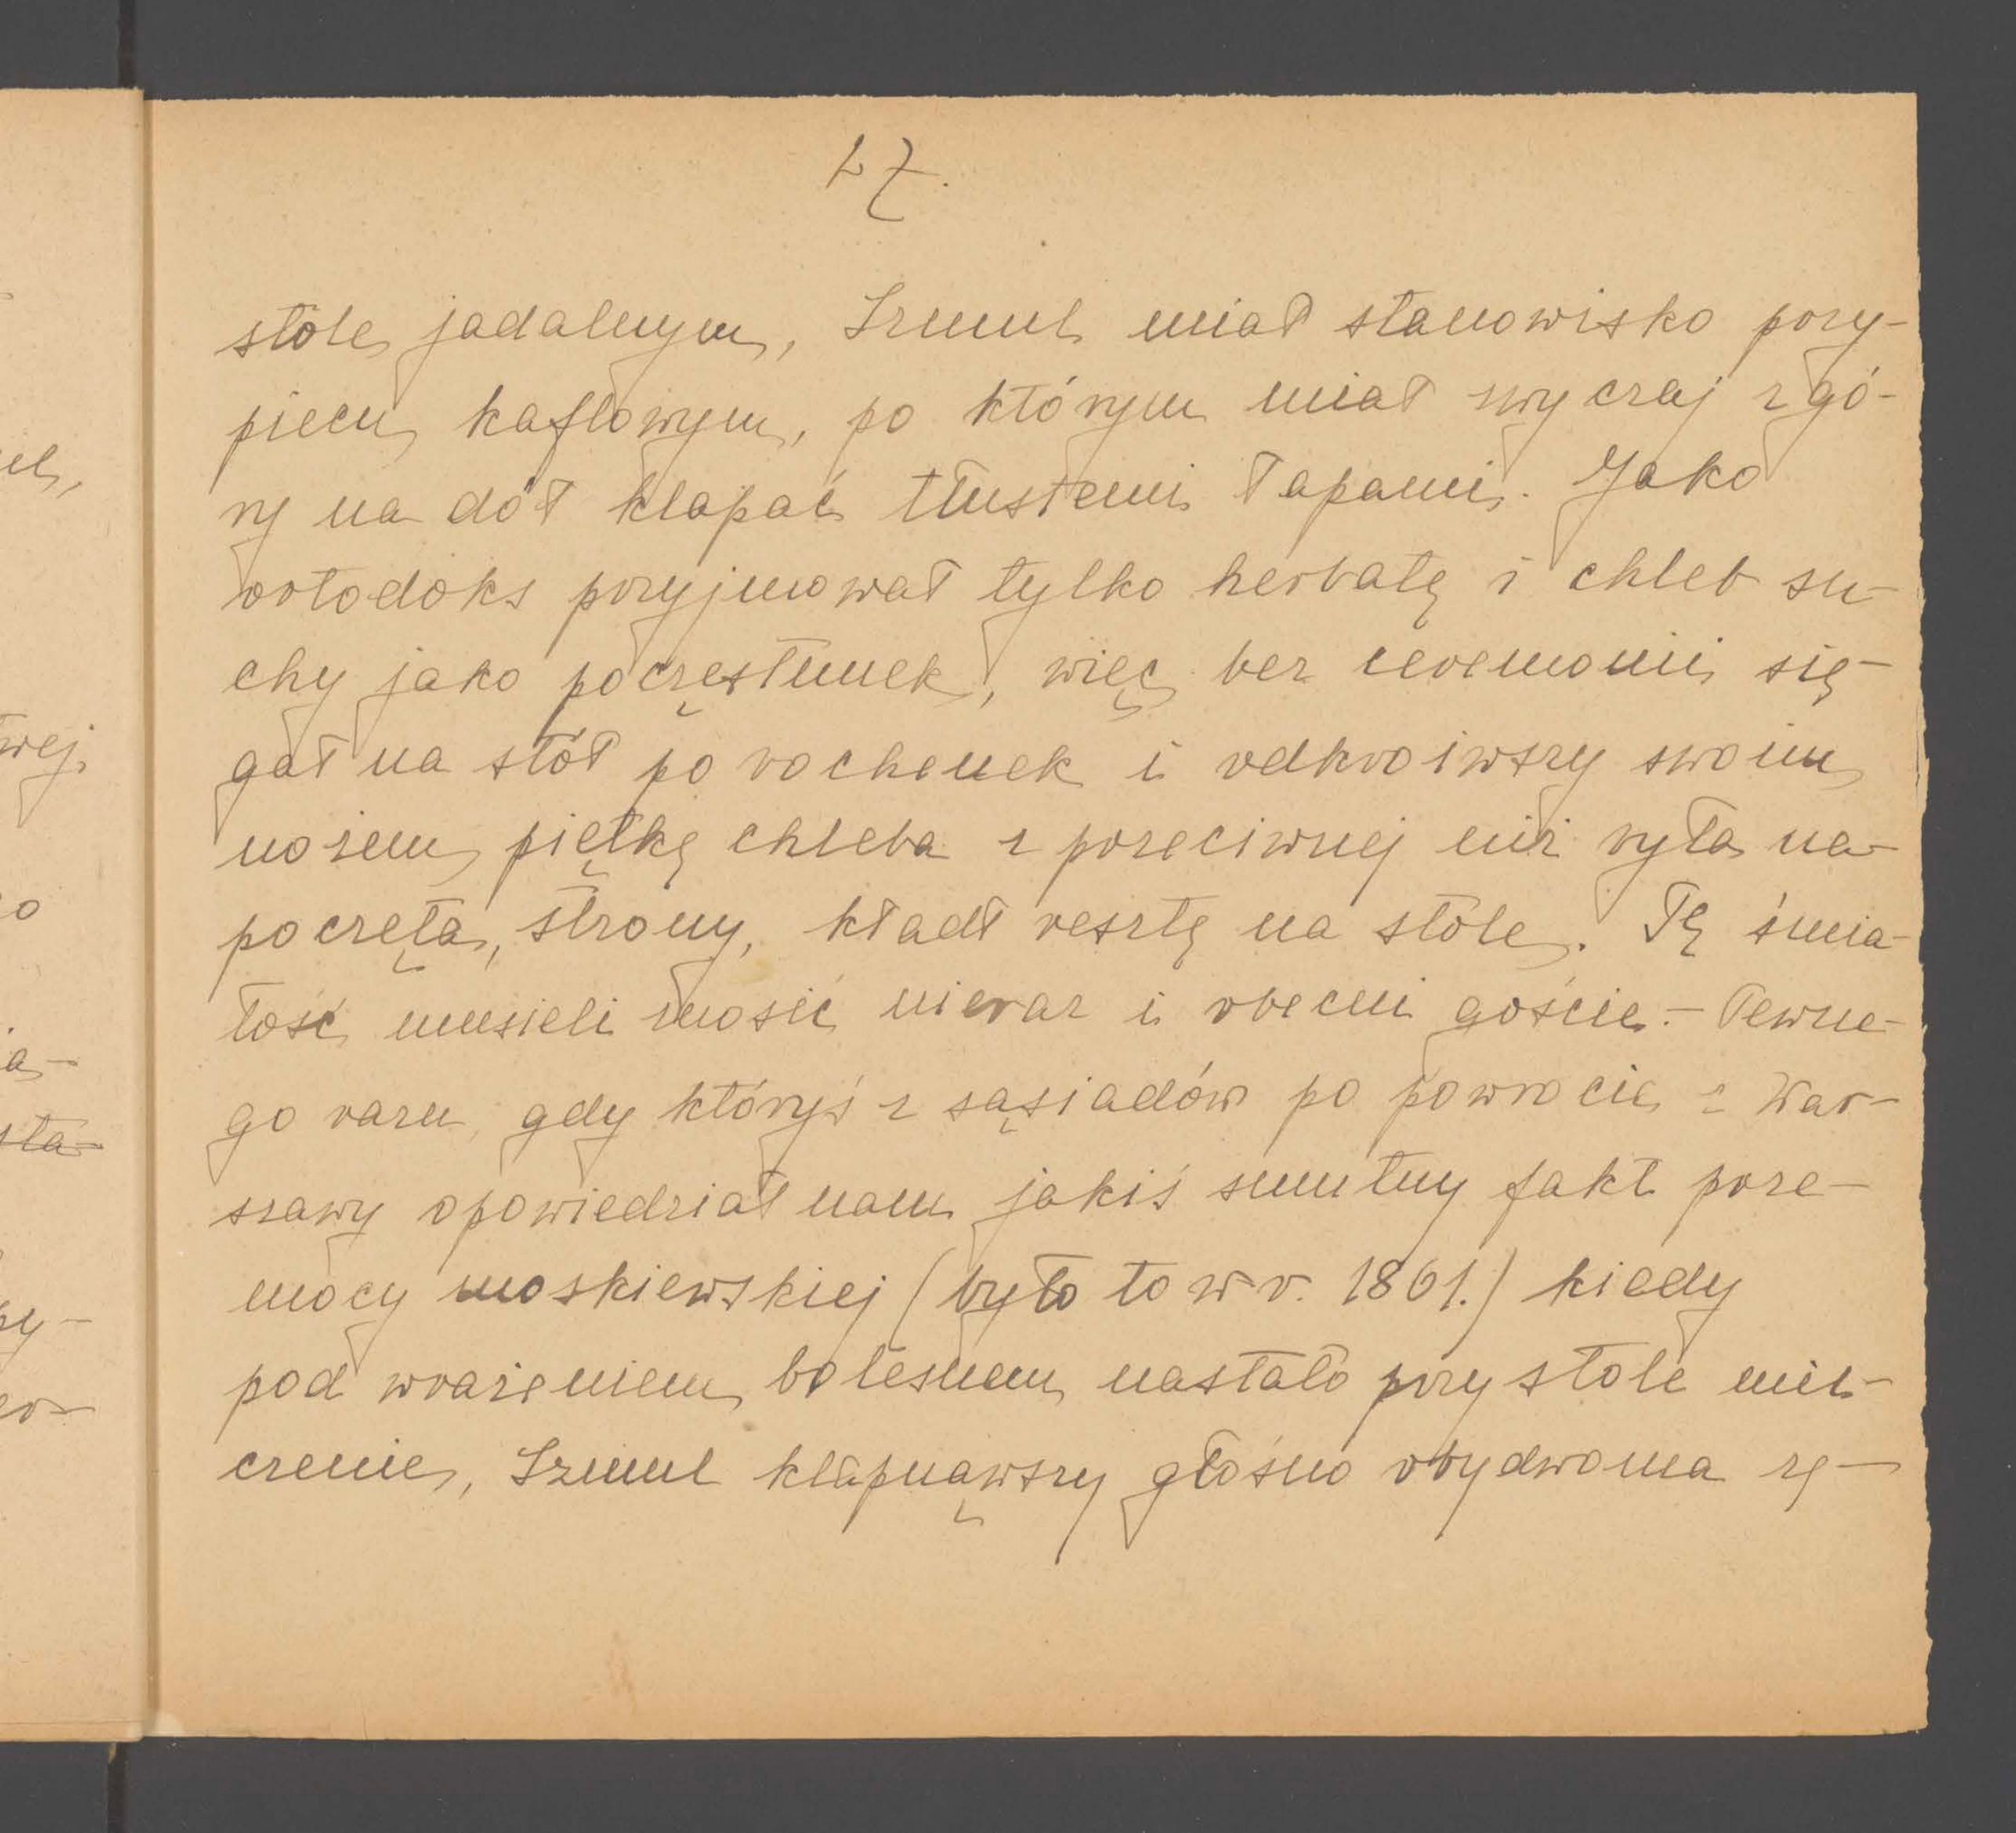 27.
stole jadalnym, Szmul miał stanowisko przy
piecu kaflowym, po którym miał zwyczaj z gó-
ry na dół klapać tłustemi łapami. Jako
ortodoks przyjmował tylko herbatę i chleb su-
chy jako poczęstunek, więc bez ceremonii się-
gał na stół po bochenek i odkroiwszy swoim
nożem piętkę chleba z przeciwnej niż była na-
poczęta, strony, kładł resztę na stole. Tę śmia-
łość musieli znosić nieraz i obecni goście. – Pewne-
go razu, gdy któryś z sąsiadów po powrocie z War-
szawy opowiedział nam jakiś smutny fakt prze-
mocy moskiewskiej (było to w r. 1861.) kiedy
pod wrażeniem bolesnem nastało przy stole mil-
czenie, Szmul klapnąwszy głośno obydwoma rę-
wej
o
a-
sta-